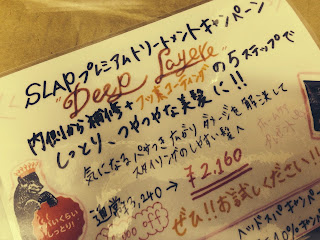 SLAPプレミアムトリートメントキャンペーン
"Deep Layere"
内側から補修+フッ素コーティングの5ステップで
しっとり、つやつやな美髪に!!
気になるパサつき、広がり、ダメージを解決して
スタイリングのしやすい髪へ
通常¥3,240→
¥2,160
ぜひ!!お試しください!!
くらい
しっとり!
ヘッドスパキャンペーン